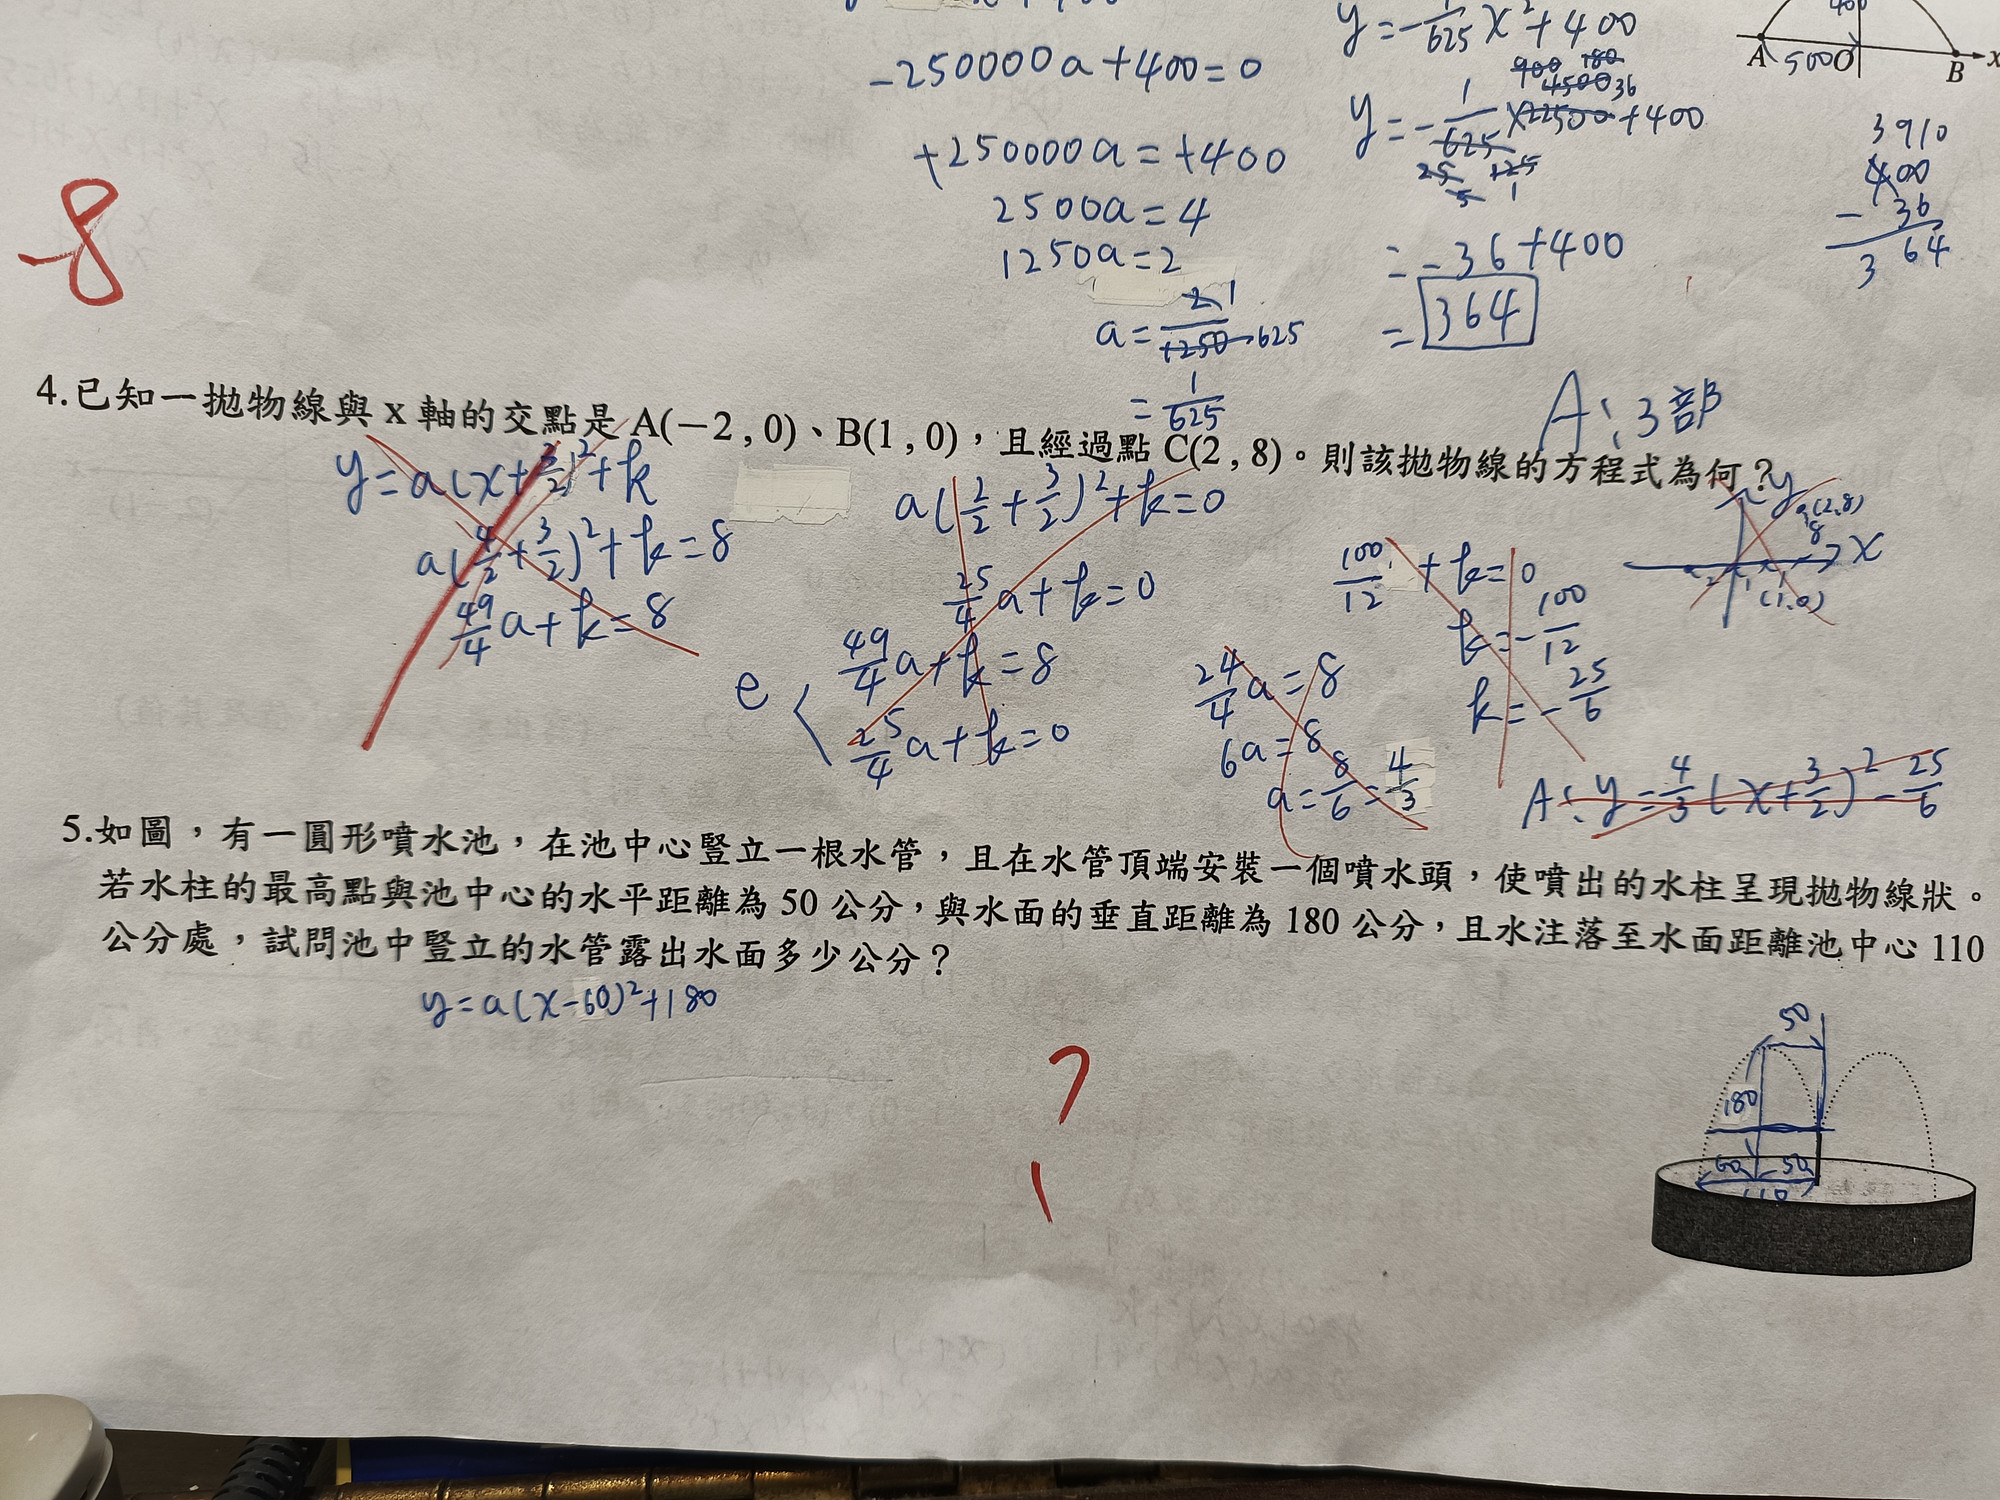 -250000a+400=0
+250000a=+400
2500a=4
1250a=2
a=2/1250 1 625
=1/625
y=-1/625x²+400
y=-1/625×22500+400
900 180
4500 36
25 125
5 1
=-36+400
=364
400
A 500 O B x
3910
400
-36
364
-8
4.已知一拋物線與 x 軸的交點是 A(-2,0)、B(1,0),且經過點 C(2,8)。則該拋物線的方程式為何?
A:3部
y=a(x+3/2)²+k
a(4/2+3/2)²+k=8
49/4a+k=8
a(2/2+3/2)²+k=0
25/4a+k=0
49/4a+k=8
25/4a+k=0
24/4a=8
6a=8
a=8/6=4/3
100/12+k=0
k=-100/12
k=-25/6
y
(2,8)
8
x
(1,0)
A:y=4/3(x+3/2)²-25/6
5.如圖,有一圓形噴水池,在池中心豎立一根水管,且在水管頂端安裝一個噴水頭,使噴出的水柱呈現拋物線狀。
若水柱的最高點與池中心的水平距離為 50 公分,與水面的垂直距離為 180 公分,且水注落至水面距離池中心 110
公分處,試問池中豎立的水管露出水面多少公分?
y=a(x-60)²+180
50
180
60 50
110